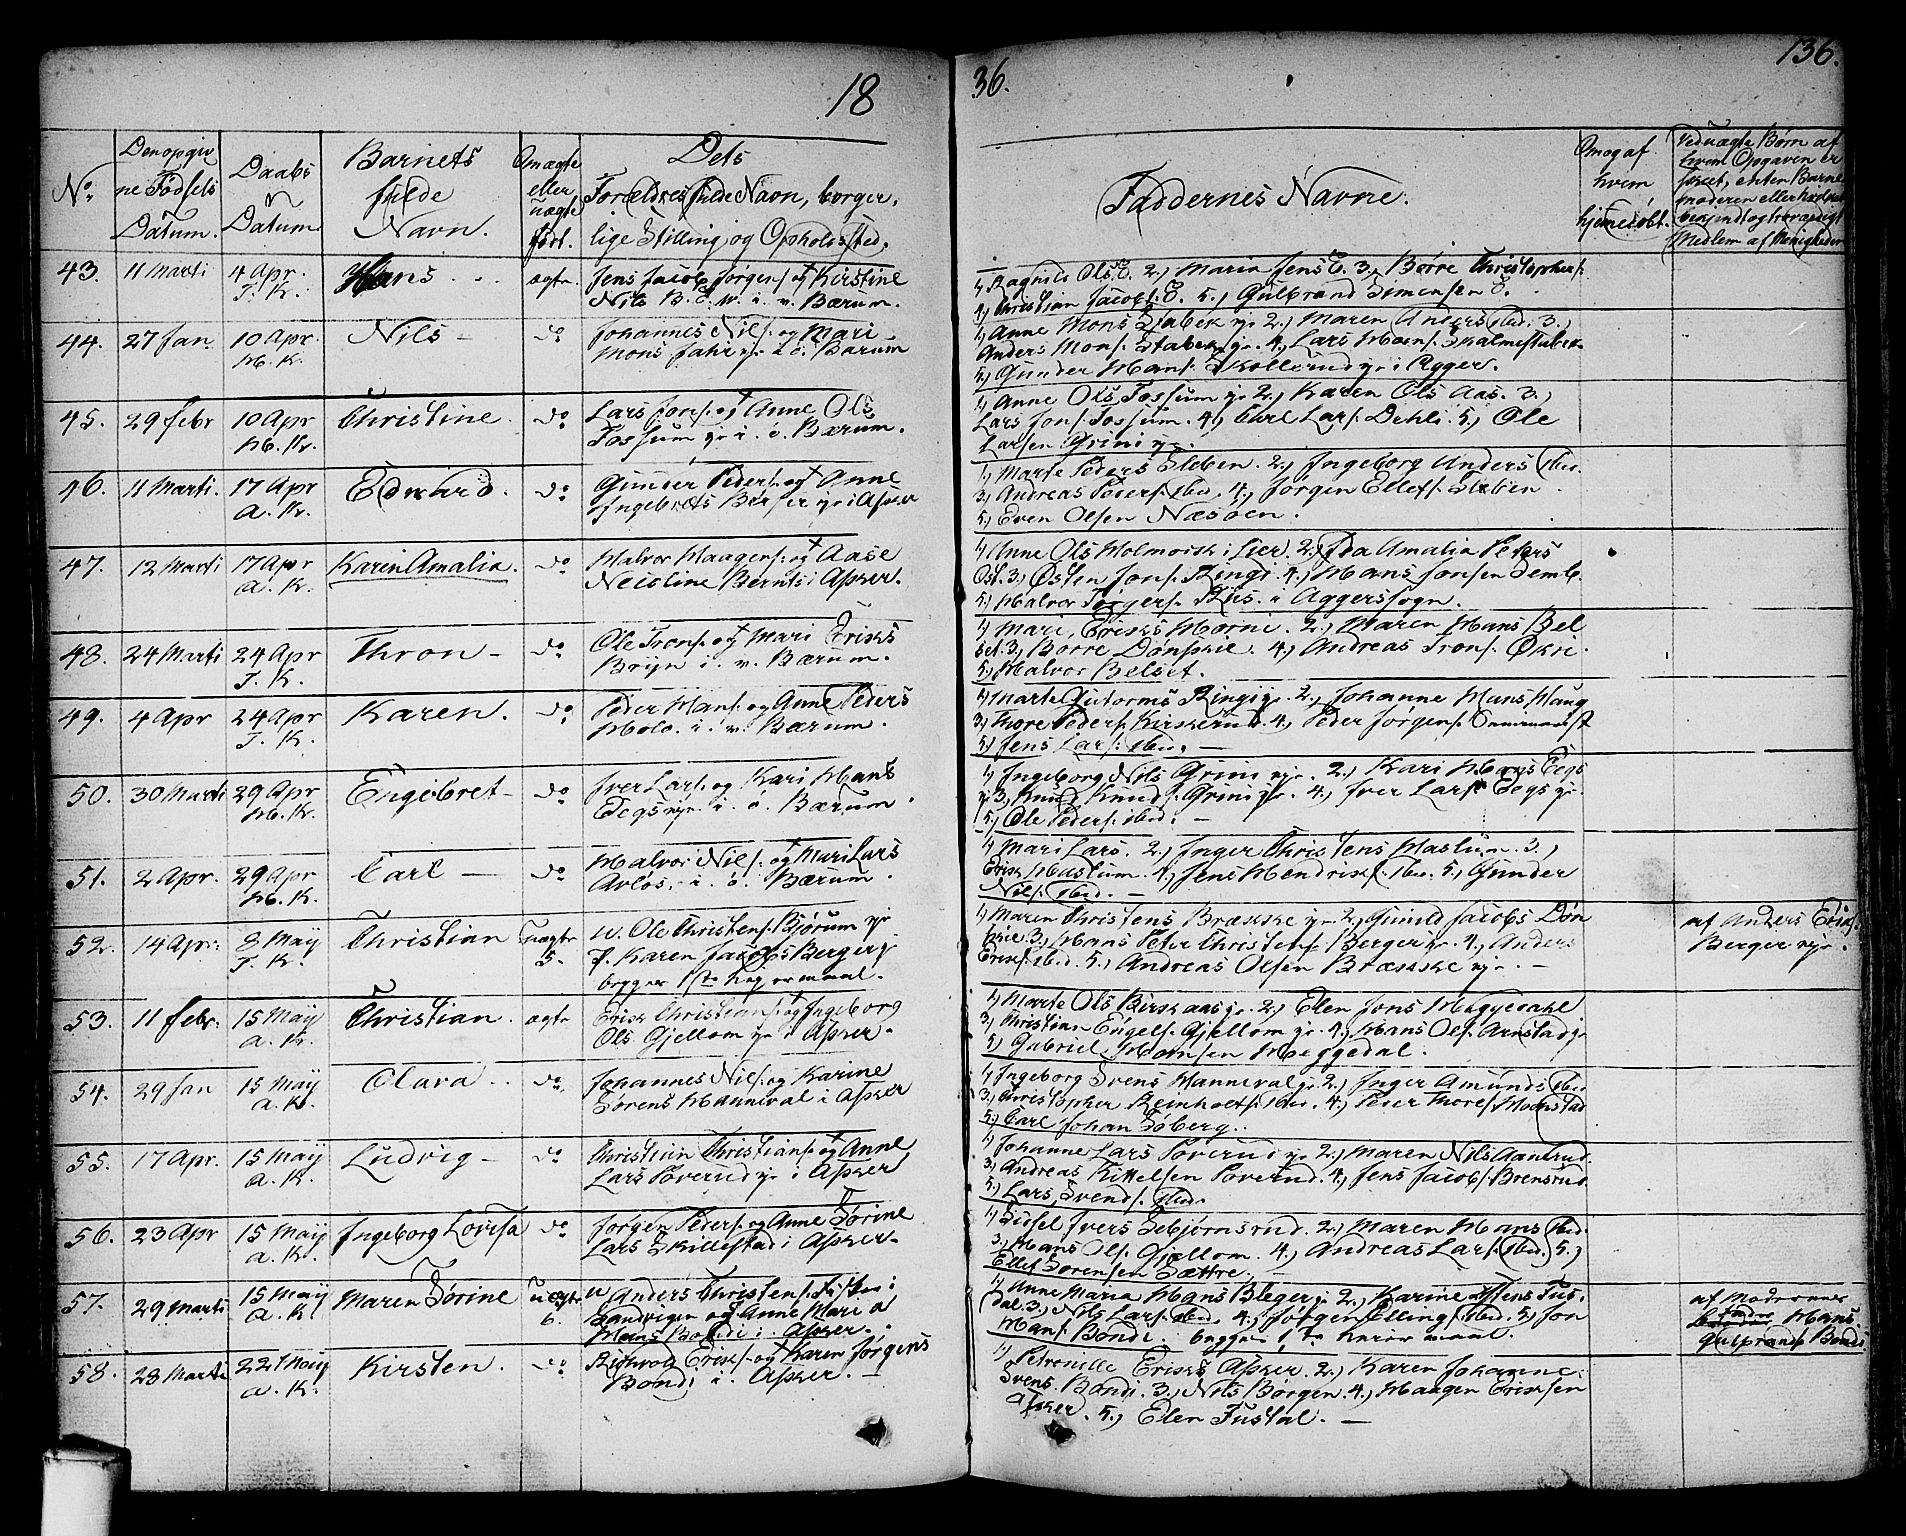 18
36.
136.
No.
Den opgiv
ne Fødsels
Datum.
Daabs
Datum.
Barnets
fulde
Navn.
Om ægte
eller
uægte
født.
Dets
Forældres fulde Navn, borger,
lige Stilling og Opholdssted.
Faddernes Navne.
Om og af
hvem
hjemedøbt.
Ved uægte Børn af
hvem Opgaven er
skeet, enten Barne
moderen eller
bekjendt og troværdigt
Medlem af Menigheden
43. 11 Marti 4 Apr. Hans ægte. Jens Jacob Jørgens. og Kirstine
T. K. Nils B. i. v. Bærum.
1, Ragnild Ols 2., Maria Jens 3., Børre Christophers.
4, Christian Jacobs. 5., Gulbrand Simensen
44. 27 Jan 10 Apr. Nils - do Johannes Nils. og Mari
H. K. Mons Jahr i ö. Bærum
1, Anne Mons Stabek 2., Maren Anders ibid. 3.,
Anders Mons. Stabek 4., Lars
5., Gunder Hans. Skollerud i Agger.
45. 29 febr 10 Apr Christine. do Lars Jons. og Anne Ols
H. K. Fossum i. ö. Bærum.
1, Anne Ols Fossum 2., Karen Ols Aas. 3.,
Lars Jons. Fossum. 4., Carl Lars. Dehli. 5., Ole
Larsen Grini
46. 11 Marti. 17 Apr Edvard. do Gunder Peders. og Anne
A. K. Ingebrets Berger i Asker
1, Marte Peders 2., Ingeborg Anders ibid.
3., Andreas Peders. ibid. 4., Jørgen Ellefs.
5., Even Olsen Næsøen.
47. 12 Marti 17 Apr Karen Amalia. do Halvor Haagens. og Aase
A. K. Nicoline Bernts i Asker.
1, Anne Ols i Lier. 2., Ida Amalia Peters
3., Østen Jons. Ringi. 4., Hans Jonsen
5., Halvor i Aggersogn.
48. 24 Marti 24 Apr Thron - do Ole Trons. og Mari Eriks
T. K. Bryn i. v. Bærum.
1, Mari Eriks Horni. 2., Maren Hans Bel
set. 3., Børre Dønskie. 4., Andreas Trons. Økri.
5., Halvor Belset.
49. 4 Apr 24 Apr Karen. do Peder Hans. og Anne Peders
T. K. Holo. i. v. Bærum.
1, Marte Gutorms Ringi 2., Johanne Hans Haug
3., Thore Peders. Kirkerud. 4., Peder Jørgens.
5., Jens Lars. ibid. -
50. 30 Marti 29 Apr Engebret - do Iver Lars. og Kari Hans
H. K. Eegs i. ö. Bærum.
1, Ingeborg Nils Grini 2., Kari Hans Eegs
3., Knud Knuds. Grini 4., Iver Lars. Eegs
5., Ole Peders. ibid. -
51. 2 Apr. 29 Apr Carl - do Halvor Nils. og Mari Lars
H. K. Avløs. i. ö. Bærum.
1, Mari Lars. 2., Inger Christens Haslum. 3.,
Erik Haslum. 4., Jens Hendriks. ibid. 5., Gunder
Nils. ibid. -
52. 14 Apr. 8 May Christian Uægte Ole Christens. Bjørum
T. K. 5. Karen Jacobs Berger,
begges 1ste maal.
1, Maren Christens Bræske 2., Gunild Jacobs Døn
skie. 3., Hans Peter Christens. Berger 4., Anders
Eriks. ibid. 5., Andreas Olsen Bræske -
af Anders Eriks.
Berger
53. 11 febr. 15 May Christian. ægte Erik Christians. og Ingeborg
A. K. Ols Gjellom i Asker.
1, Marte Ols Birkaas 2., Elen Jons Heggedahl
3., Christian Engels. Gjellom 4., Hans Ols. Arnestad
5., Gabriel Hansen Heggedal.
54. 29 Jan 15 May Clara do. Johannes Nils. og Karine
A. K. Sørens Hanneval i Asker
1, Ingeborg Svens Hanneval 2., Inger Amunds ibid
3., Christopher Reinholts. ibid. 4., Peter Thores.
5., Carl Johan Søberg.
55. 17 Apr. 15 May Ludvig - do Christian Christians. og Anne
A. K. Lars Poverud i Asker
1, Johanne Lars Poverud 2., Maren Nils
3., Andreas Kittelsen Poverud. 4., Jens Jacobs. Brensrud
5., Lars Svends. ibid.
56. 23 Apr 15 May Ingeborg Lovisa do Jørgen Peders. og Anne Sørine
A. K. Lars Skillestad i Asker.
1, Sidsel Ivers Sebjørnsrud. 2., Maren Hans ibid.
3., Hans Ols. Gjellom. 4., Andreas Lars. ibid. 5.,
Ellef Sørensen Sættre.
57. 29 Marti 15 May Maren Sørine uægte Anders Christens.
A. K. 6. Sandvigen og Anne Maria
Hans Bondi i. Asker.
1, Anne Maria Hans Bleger 2., Karine Jens Fus
dal. 3., Nils Lars. ibid. 4., Jørgen Elling. ibid. 5., Jon
Hans. Bondi. begges 1ste maal.
af Moderens
Hans
Gulbrands Bondi
58. 28 Marti 22 May Kirsten. do Eriks. og Karen Jørgens
A. K. Bondi i. Asker. -
1, Petronille Eriks Asker. 2., Karen Johanne
Svens Bondi. 3., Nils Borgen. 4., Haagen Eriksen
Asker. 5., Elen Fusdal. -